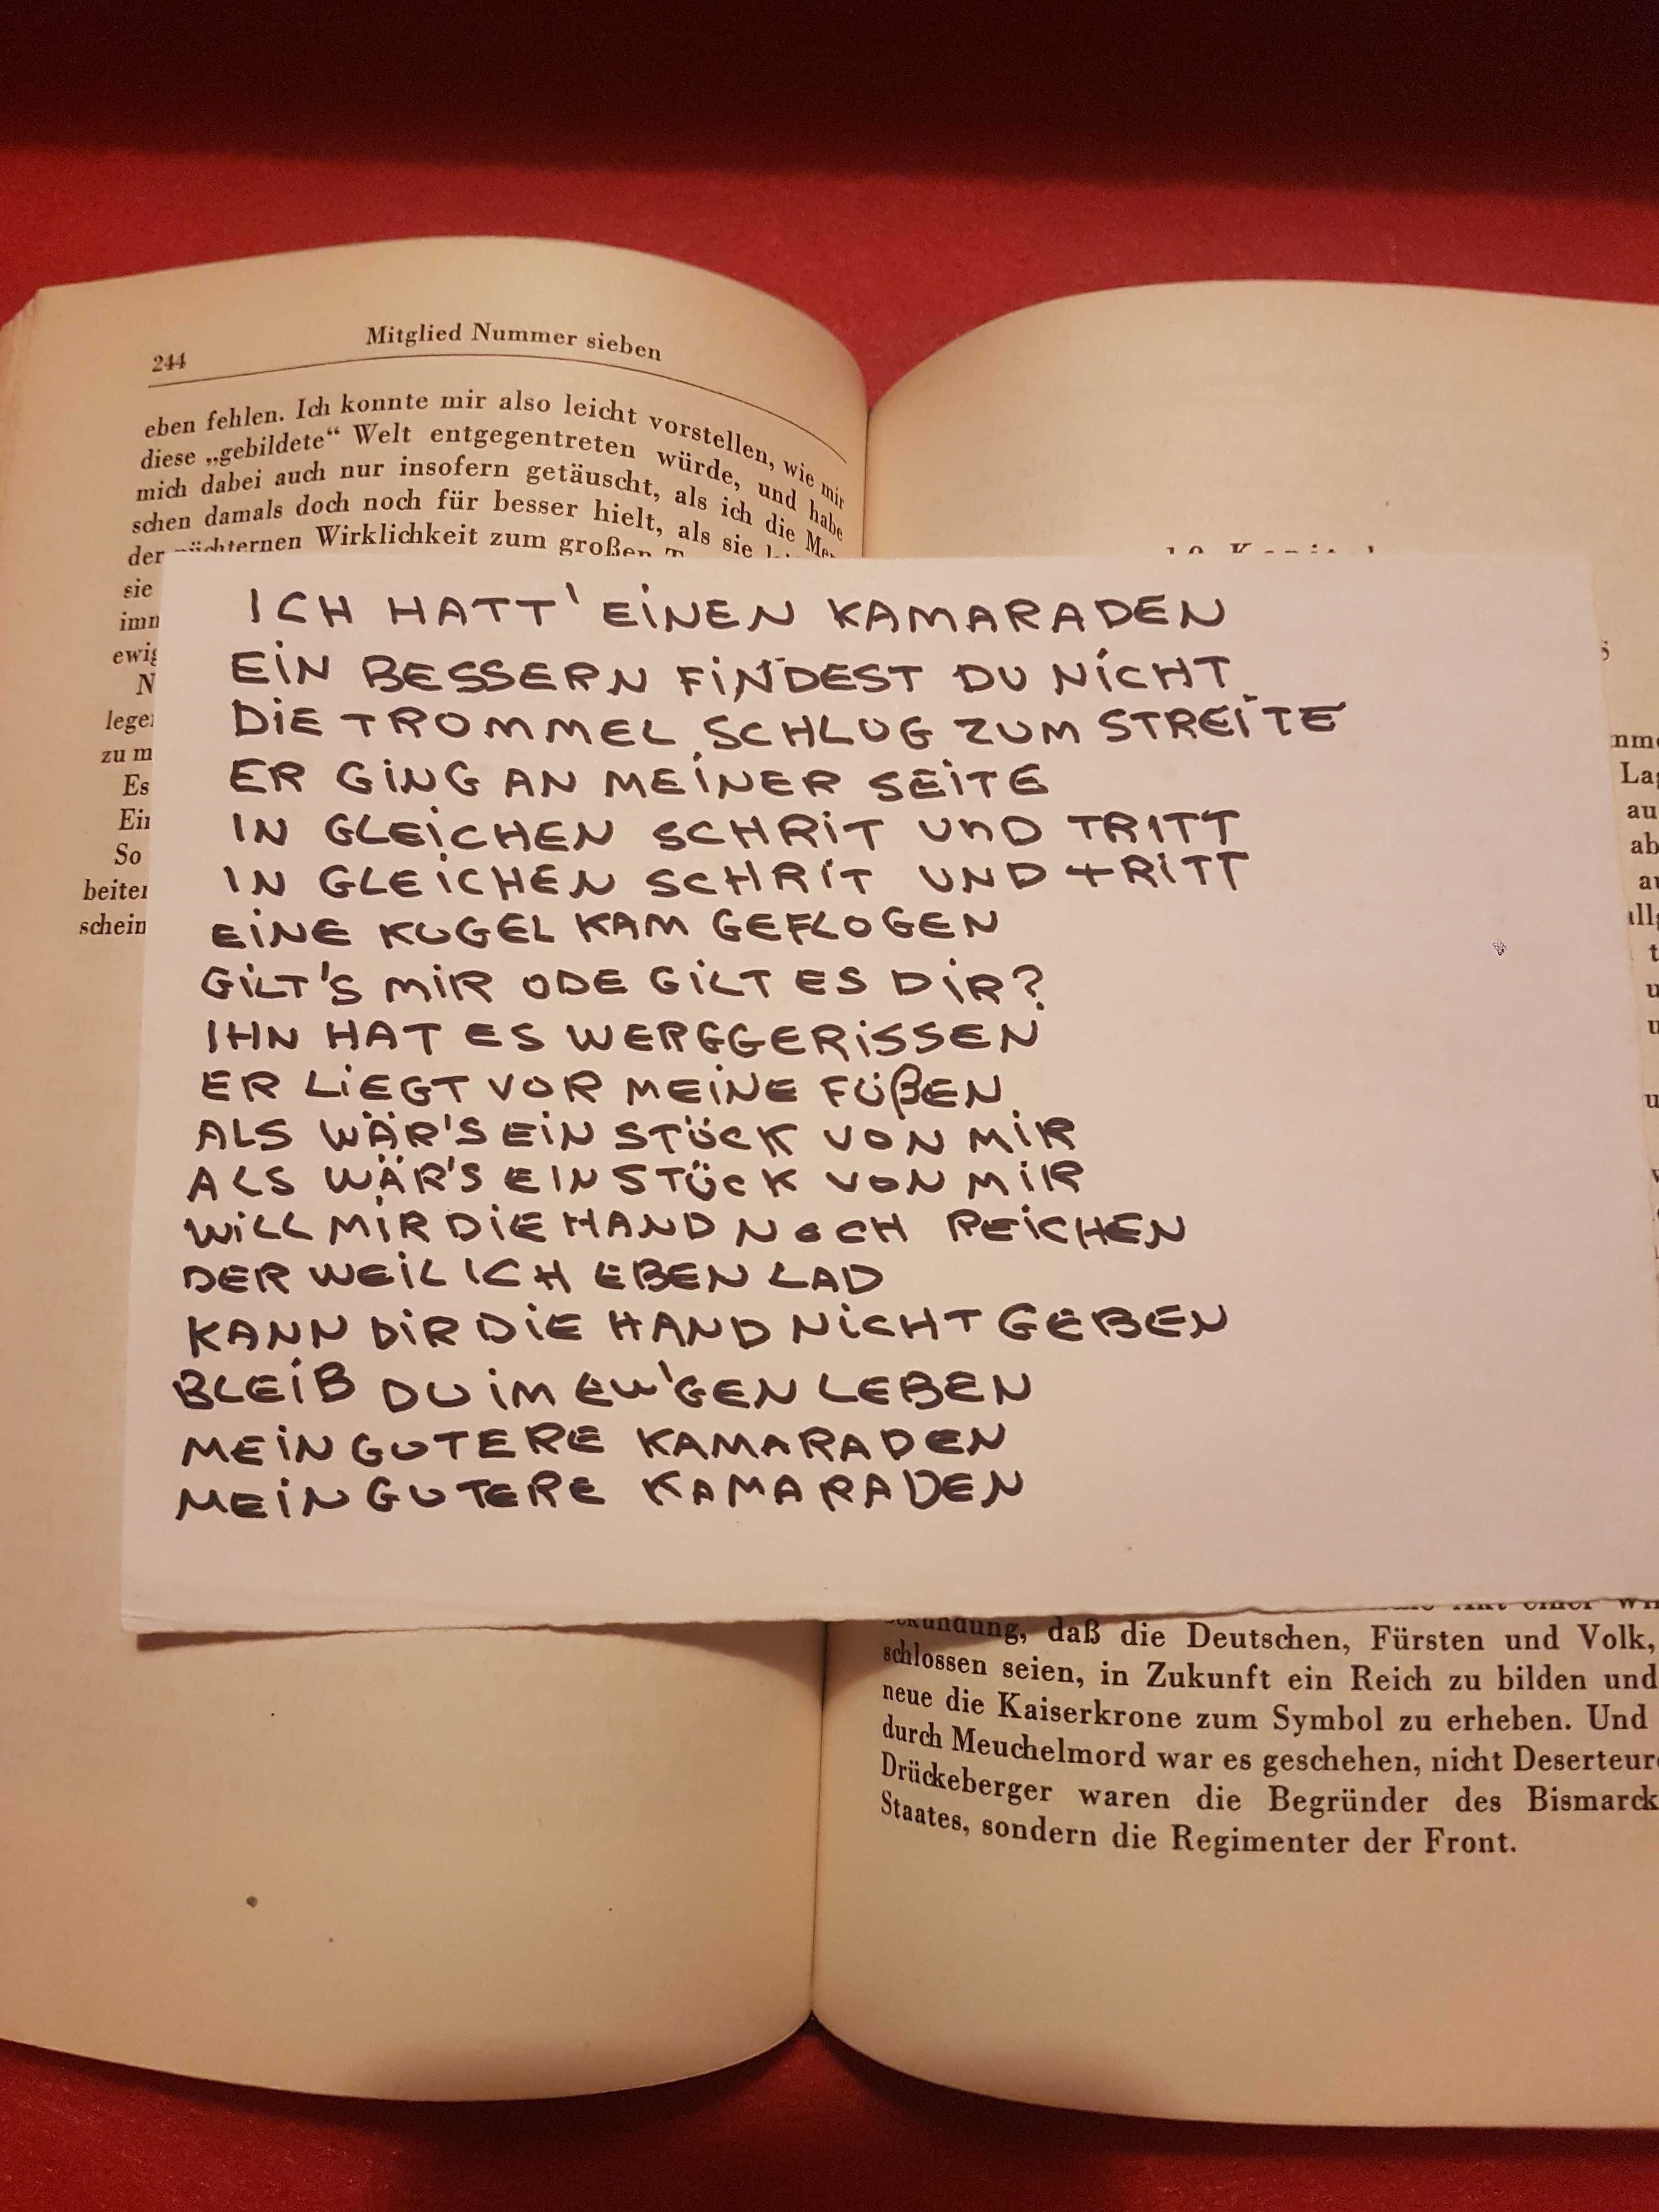 244
Mitglied Nummer sieben
eben fehlen. Ich konnte mir also leicht vorstellen, wie mir
diese „gebildete“ Welt entgegentreten würde, und habe
mich dabei auch nur insofern getäuscht, als ich die Men
schen damals doch noch für besser hielt, als sie
der nüchternen Wirklichkeit zum großen
sie
imn
ewig
N
lege
zu m
Es
Ein
So
beiter
schein
ICH HATT' EINEN KAMARADEN
EIN BESSERN FINDEST DU NICHT
DIE TROMMEL SCHLUG ZUM STREITE
ER GING AN MEINER SEITE
IN GLEICHEN SCHRIT UND TRITT
IN GLEICHEN SCHRIT UND TRITT
EINE KUGEL KAM GEFLOGEN
GILT'S MIR ODE GILT ES DIR?
IHN HAT ES WERGGERISSEN
ER LIEGT VOR MEINE FÜßEN
ALS WÄR'S EIN STÜCK VON MIR
ALS WÄR'S EIN STÜCK VON MIR
WILL MIR DIE HAND NOCH REICHEN
DER WEIL ICH EBEN LAD
KANN DIR DIE HAND NICHT GEBEN
BLEIB DU IM EW'GEN LEBEN
MEIN GUTERE KAMARADEN
MEIN GUTERE KAMARADEN
10. Kapitel
nme
Lag
au
ab
kundung, daß die Deutschen, Fürsten und Volk,
schlossen seien, in Zukunft ein Reich zu bilden und
neue die Kaiserkrone zum Symbol zu erheben. Und
durch Meuchelmord war es geschehen, nicht Deserteur
Drückeberger waren die Begründer des Bismarck
Staates, sondern die Regimenter der Front.